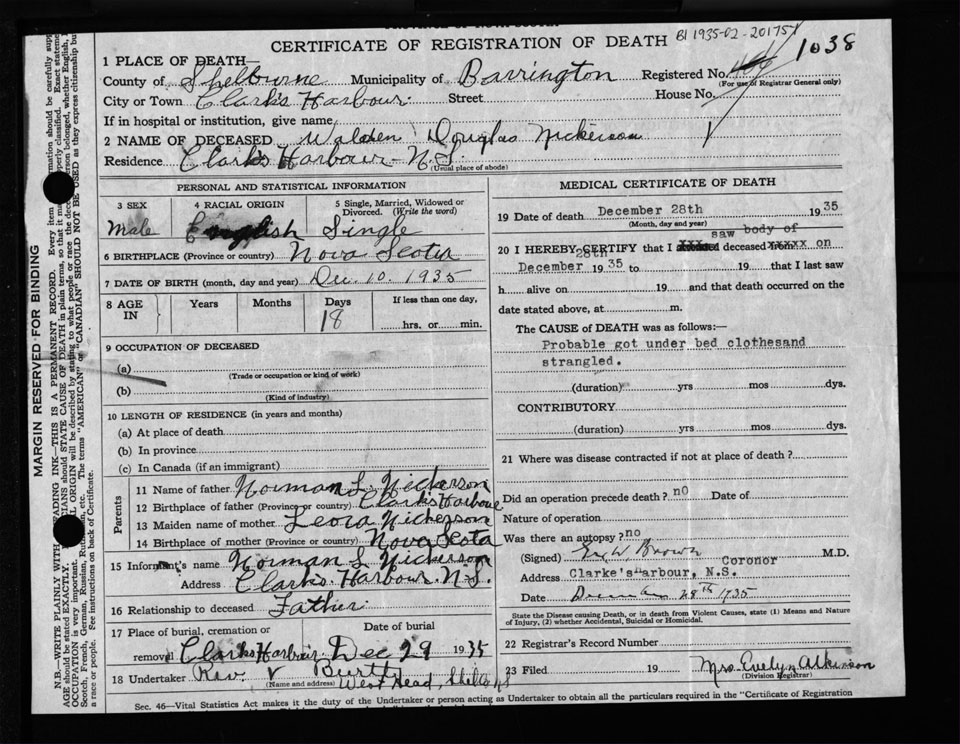 CERTIFICATE OF REGISTRATION OF DEATH
B1 1935-02-201751
1038
1 PLACE OF DEATH—
County of Shelburne Municipality of Barrington Registered No.
(For use of Registrar General only)
City or Town Clark's Harbour. Street House No.
If in hospital or institution, give name
2 NAME OF DECEASED Walden Douglas Nickerson
Residence Clark's Harbour - N.S.
(Usual place of abode)
PERSONAL AND STATISTICAL INFORMATION
3 SEX
Male
4 RACIAL ORIGIN
English
5 Single, Married, Widowed or Divorced. (Write the word)
Single
6 BIRTHPLACE (Province or country) Nova Scotia
7 DATE OF BIRTH (month, day and year) Dec. 10. 1935
8 AGE IN
Years
Months
Days
18
If less than one day,
hrs. or min.
9 OCCUPATION OF DECEASED
(a)
(Trade or occupation or kind of work)
(b)
(Kind of industry)
10 LENGTH OF RESIDENCE (in years and months)
(a) At place of death
(b) In province
(c) In Canada (if an immigrant)
Parents
11 Name of father Norman L. Nickerson
12 Birthplace of father (Province or country) Clark's Harbour
13 Maiden name of mother Leora Nickerson
14 Birthplace of mother (Province or country) Nova Scota
15 Informant's name Norman L Nickerson
Address Clark's Harbour. N.S.
16 Relationship to deceased Father
17 Place of burial, cremation or removal Clark's Harbour
Date of burial
Dec 29 1935
18 Undertaker Rev. V Burtt
(Name and address) West Head,
MEDICAL CERTIFICATE OF DEATH
19 Date of death December 28th 1935
(Month, day and year)
saw body of
20 I HEREBY CERTIFY that I xxxxxx deceased xxxxx on
28th
December 1935 to 19 that I last saw
h alive on 19 and that death occurred on the
date stated above, at m.
The CAUSE of DEATH was as follows:—
Probable got under bed clothesand
strangled.
(duration) yrs mos dys.
CONTRIBUTORY
(duration) yrs mos dys.
21 Where was disease contracted if not at place of death?
Did an operation precede death? no Date of
Nature of operation
Was there an autopsy? no
(Signed) Brown Coronor M.D.
Address Clarke's Harbour, N.S.
Date December 28th 1935
State the Disease causing Death, or in death from Violent Causes, state (1) Means and Nature
of Injury, (2) whether Accidental, Suicidal or Homicidal.
22 Registrar's Record Number
23 Filed 19 Mrs. Evelyn Atkinson
(Division Registrar)
Sec. 46—Vital Statistics Act makes it the duty of the Undertaker or person acting as Undertaker to obtain all the particulars required in the "Certificate of Registration
MARGIN RESERVED FOR BINDING
N.B.—WRITE PLAINLY WITH UNFADING INK—THIS IS A PERMANENT RECORD. Every item
AGE should be stated EXACTLY.
See instructions on back of Certificate.